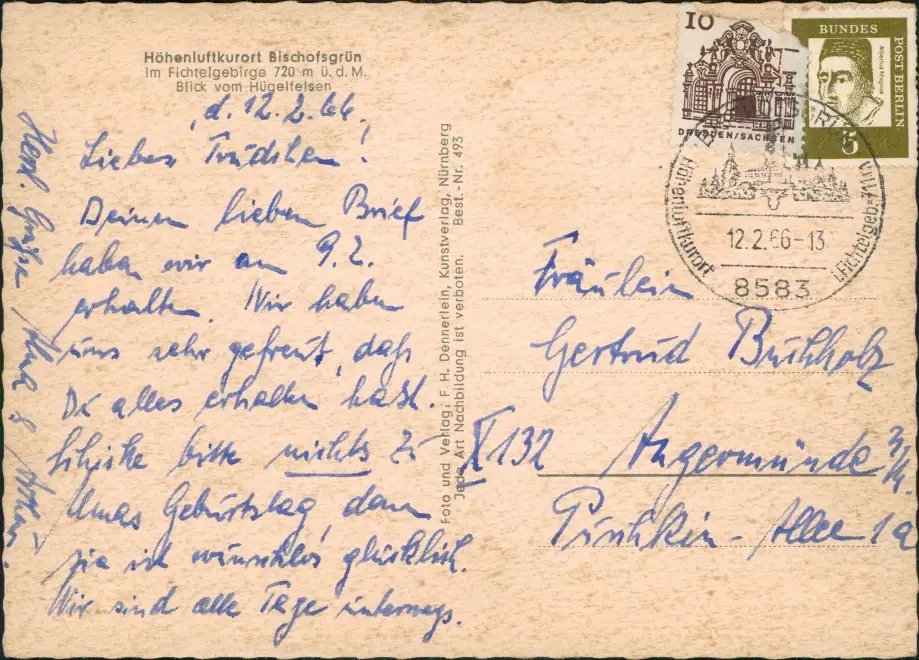 Höhenluftkurort Bischofsgrün
im Fichtelgebirge 720 m ü. d. M.
Blick vom Hügelfelsen
d. 12. 2. 66.
Liebes Trudchen!
Deinen lieben Brief
haben wir am 9. 2.
erhalten. Wir haben
uns sehr gefreut, daß
Du alles erhalten hast.
Schicke bitte nichts zu
Umas Geburtstag, denn
sie ist wunschlos glücklich.
Wir sind alle Tage unterwegs.
Herzl. Grüße
Foto und Verlag: F. H. Dennerlein, Kunstverlag, Nürnberg
Jede Art Nachbildung ist verboten. Best.-Nr. 493
10
DRESDEN/SACHSEN
BUNDES
POST BERLIN
Albertus Magnus
5
Höhenluftkurort
i. Fichtelgeb.
12.2.66-13
8583
Fräulein
Gertrud Buchholz
X 132 Angermünde
Puschkin-Allee 1a